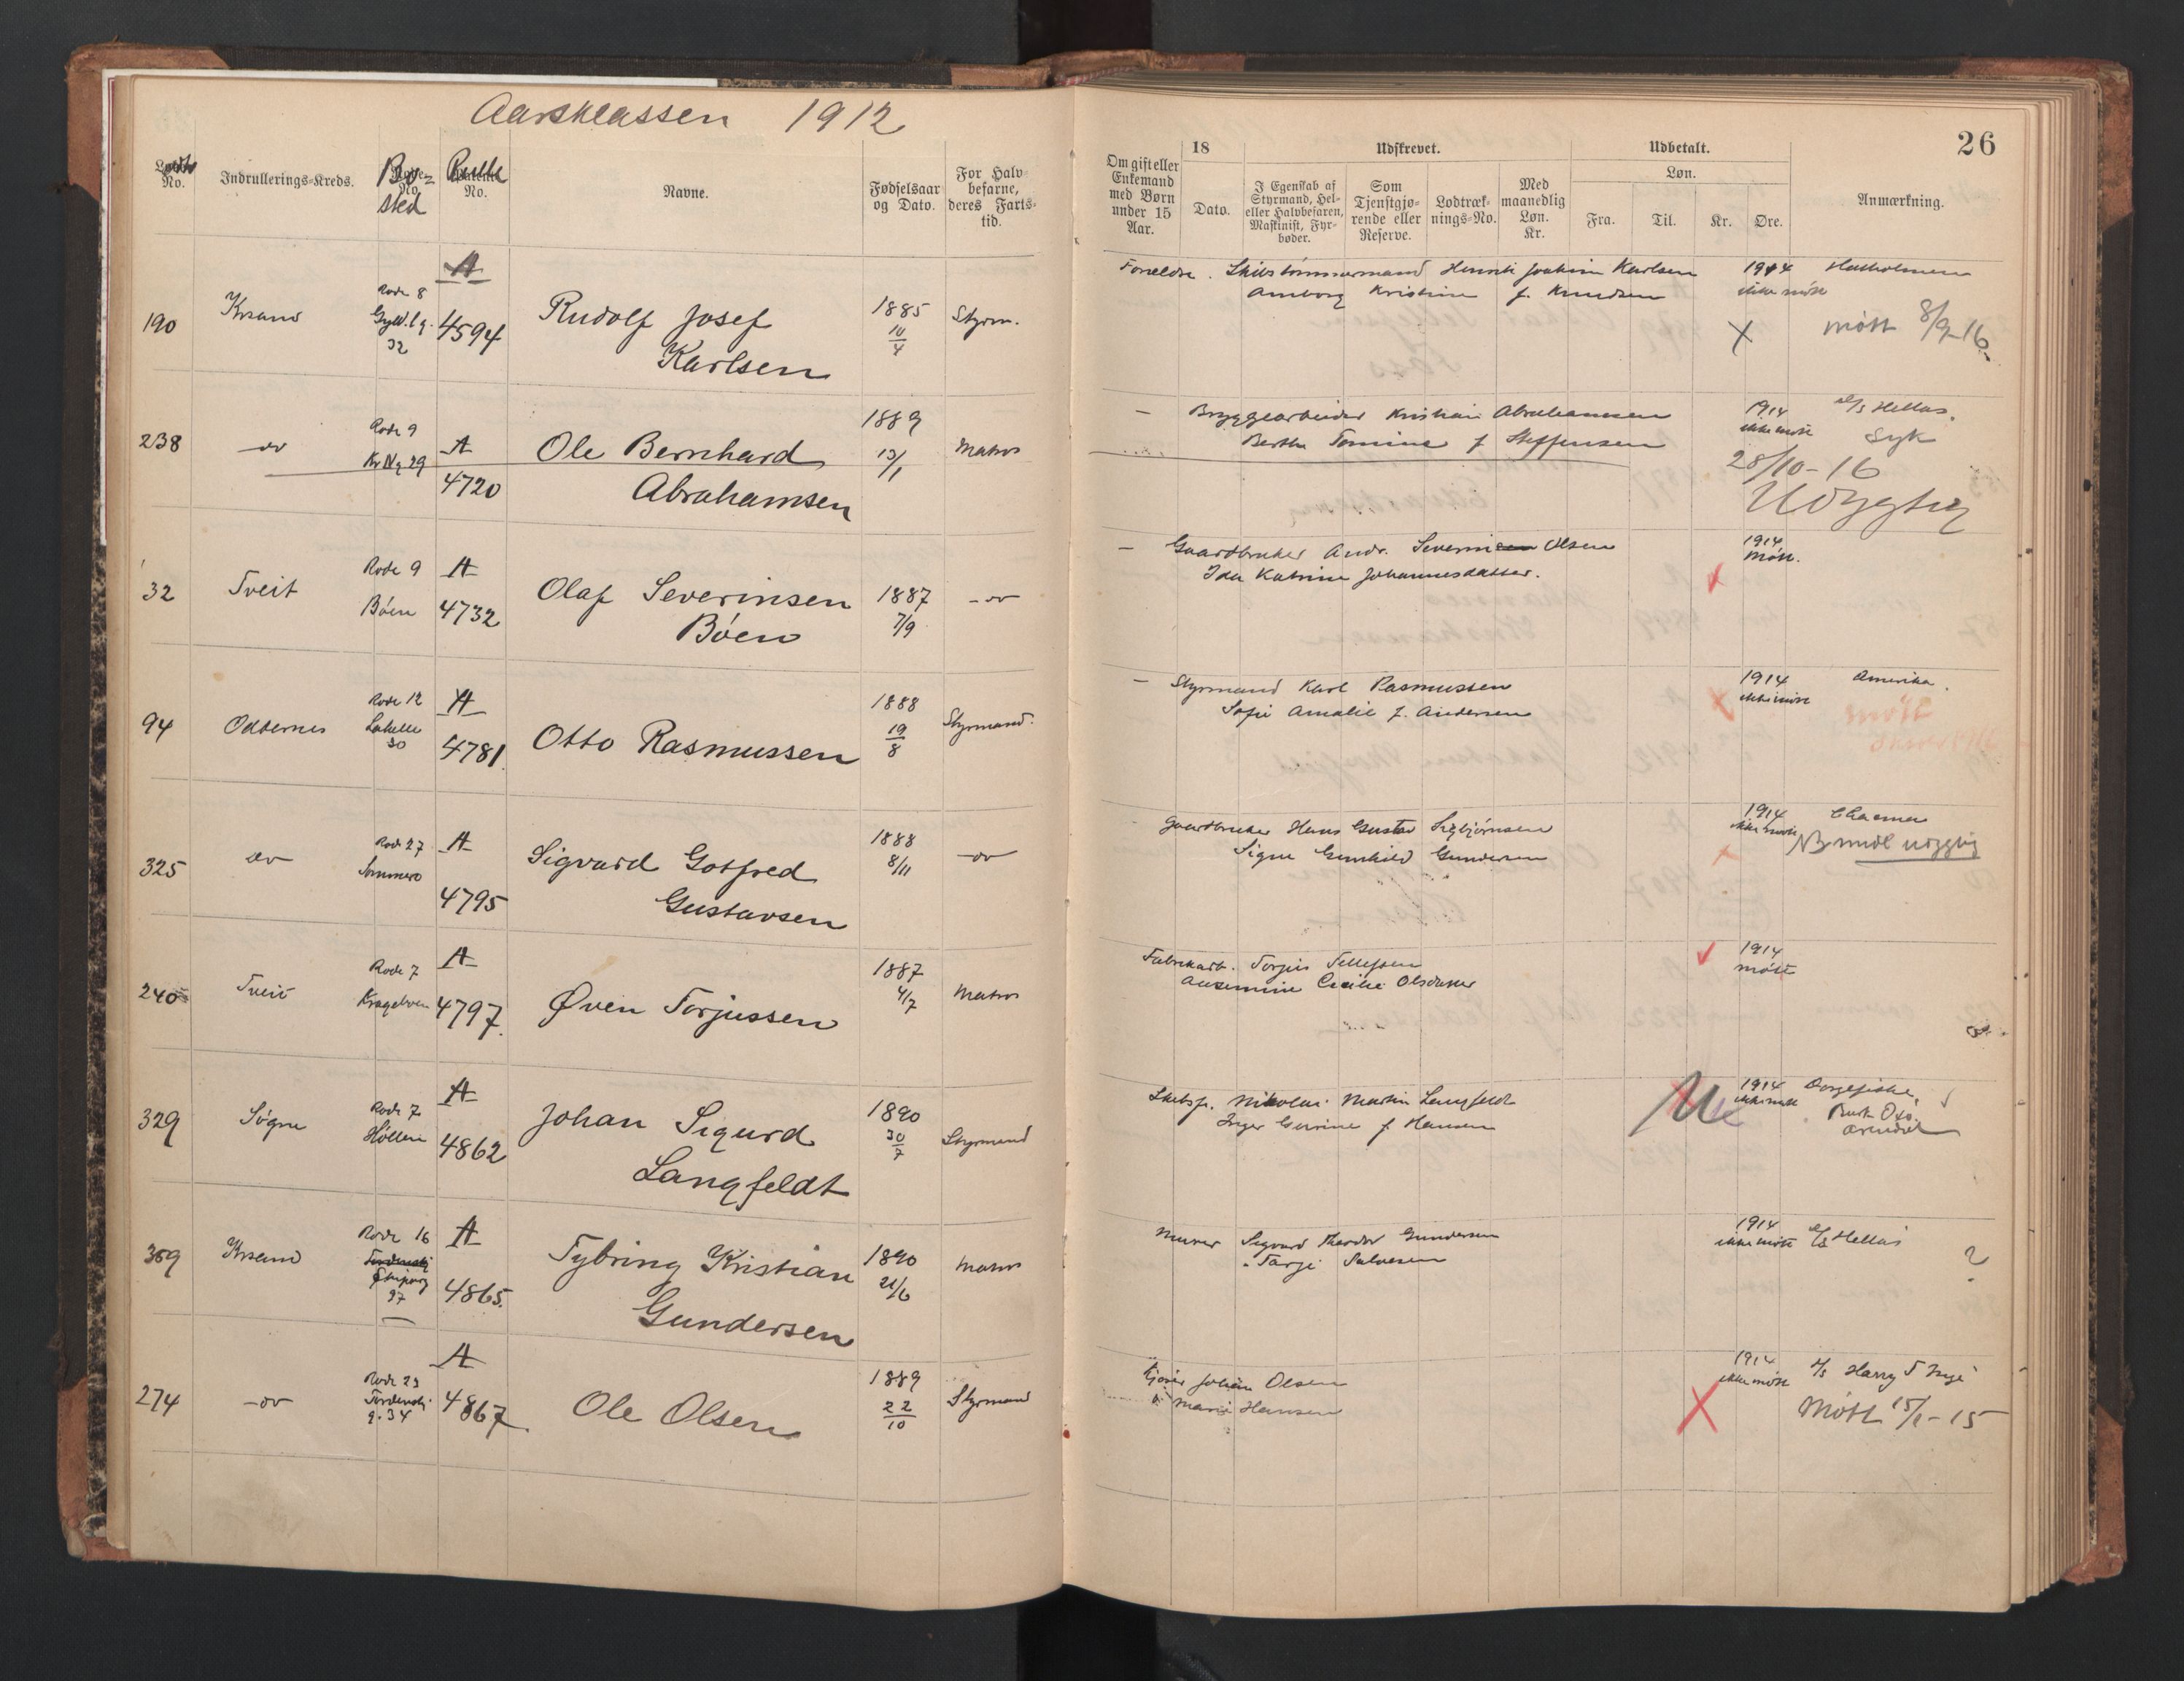 Aarsklassen 1912
26
No.
Indrullerings-Kreds.
Bo-
sted
Rulle
No.
Navne.
Fødselsaar
og Dato.
For Halv-
befarne,
deres Farts-
tid.
Om gift eller
Enkemand
med Børn
under 15
Aar.
18
Dato.
Udskrevet.
I Egenskab af
Styrmand, Hel-
eller Halvbefaren,
Maskinist, Fyr-
bøder.
Som
Tjenstgjø-
rende eller
Reserve.
Lodtræk-
nings-No.
Med
maanedlig
Løn.
Kr.
Udbetalt.
Løn.
Fra.
Til.
Kr.
Øre.
Anmærkning.
190 Krsand Rode 8
Gyld.lg.
32
A
4594
Rudolf Josef
Karlsen
1885
10
4
Styrm.
Foreldre. Skibstømmermand Henrik Joakim Karlsen
Amborg Kristine f. Knudsen
1914
ikke møtt
Hatholmen
X møtt 8/9-16.
238 do Rode 9
Kr N.g 29
A
4720
Ole Bernhard
Abrahamsen
1889
13/1
Matros
- Bryggearbeider Kristian Abrahamsen
Berthe Tomine f Steffensen
1914
ikke møtt
S/S Hellas.
syk
28/10-16
Udygtig
32 Tveit Rode 9
Bøen
A
4732
Olaf Severinsen
Bøen
1887
7/9
- do
- Gaardbruker Andr. Severinsen Olsen
Ida Katrine Johannesdatter.
1914
Møtt.
94 Oddernes Rode 12
Lahelle
30
A
4781.
Otto Rasmussen
1888
19
8
Styrmand.
- Styrmand Karl Rasmussen
Sofie Amalie f. Andersen
X
1914
ikke møtt
Amerika.
325 do Rode 27
Sommero
A
4795
Sigvard Gotfred
Gustavsen
1888
8/11
- do
- Gaardbruker Hans Gustav Sigbjørnsen
Signe Gunhild Gundersen
1914
ikke møtt
NB midl udygtig
240 Tveit Rode 7
Krageboen
A
4797.
Øven Torjussen
1887
4/7
Matros
Fabrikarb. Torjus Tellefsen
Cecilie Olsdatter
1914
møtt
329 Søgne Rode 7
Høllen
A
4862
Johan Sigurd
Langfeldt
1890
30
7
Styrmand
Skibsf. Nikolai Martin Langfeldt
Inger Gurine f Hansen
1914
ikke møtt
Arendal
309 Krsand Rode 16
97
A
4865.
Tybring Kristian
Gundersen
1890
21/6
Matros
Murer Sigvard Theodor Gundersen
Tarje Salvesen
1914
ikke møtt
S/S Hellas
?
274 - do Rode 23
Tordensk.
g. 34
A
4867.
Ole Olsen
1889
22
10
Styrmand
Johan Olsen
Marie Hansen
X
1914
ikke møtt
Harry T Inge
Møtt 15/1-15